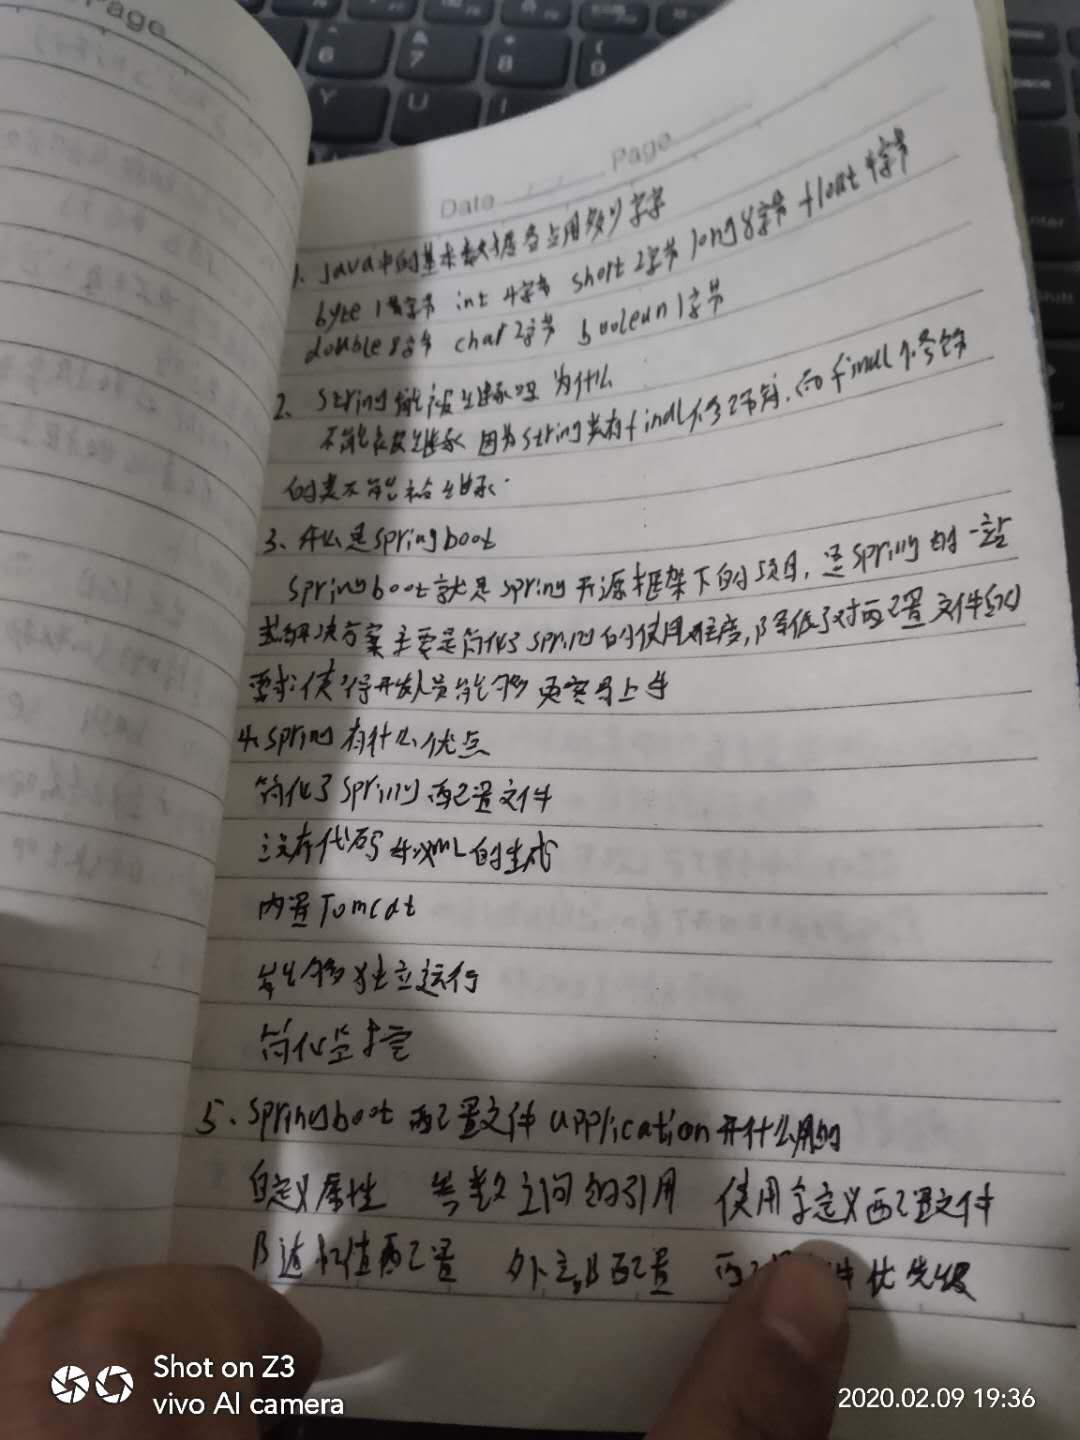 Page
Date Page
1. Java中的基本数据各占用多少字节
byte 1字节 int 4字节 short 2字节 long 8字节 float 4字节
double 8字节 char 2字节 boolean 1字节
2、String能被继承吗 为什么
不能被继承 因为String类有final修饰符,而final修饰
的类不能被继承.
3、什么是springboot
Springboot就是spring开源框架下的项目,是Spring的一站
式解决方案 主要是简化了spring的使用难度,降低了对配置文件的
要求,使得开发人员能够更容易上手
4、spring有什么优点
简化了Spring配置文件
没有代码和XML的生成
内置Tomcat
能够独立运行
简化监控
5、Springboot配置文件application有什么用的
自定义属性 参数之间的引用 使用自定义配置文件
随机值配置 外部配置 优先级
6 7 8 9
Y U I
Shot on Z3
vivo AI camera
2020.02.09 19:36